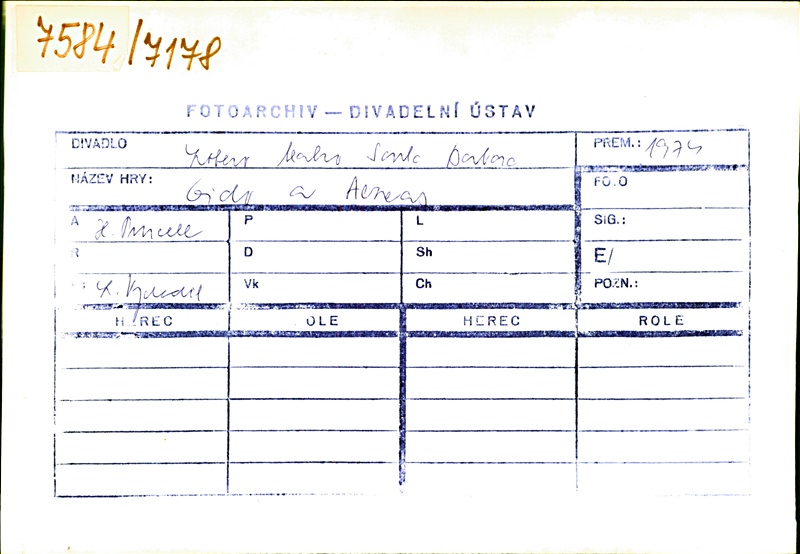 7584/7178
FOTOARCHIV — DIVADELNÍ ÚSTAV
DIVADLO Lobero teatro Santa Barbara
PREM.: 1974
NÁZEV HRY: Dido a Aeneas
FO.O
A H. Purcell
P
L
SIG.:
R
D
Sh
E/
Vk
Ch
POZN.:
HEREC OLE HEREC ROLE